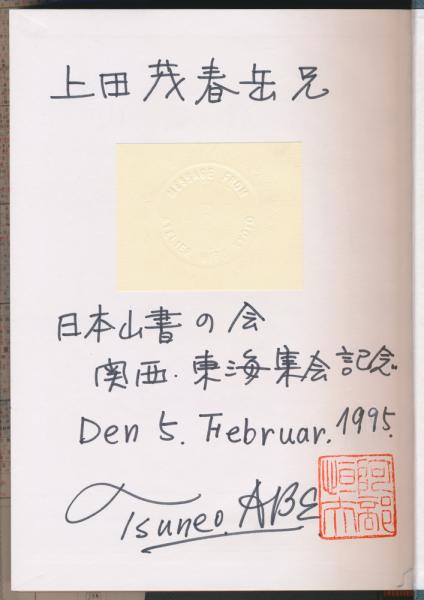 上田茂春岳兄
MESSAGE FROM
ATELIER
日本山書の会
関西.東海集会記念
Den 5. Februar. 1995.
Tsuneo. ABE
阿部
恒夫